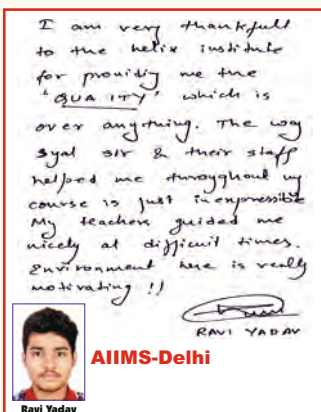 I am very thankfull
to the helix institute
for providig me the
'QUALITY' which is
over anything. The way
syal sir & their staff
helped me throughout my
course is just inexpressible
My teachers guided me
nicely at difficult times.
Environment here is really
motivating !!
RAVI YADAV
AIIMS-Delhi
Ravi Yadav